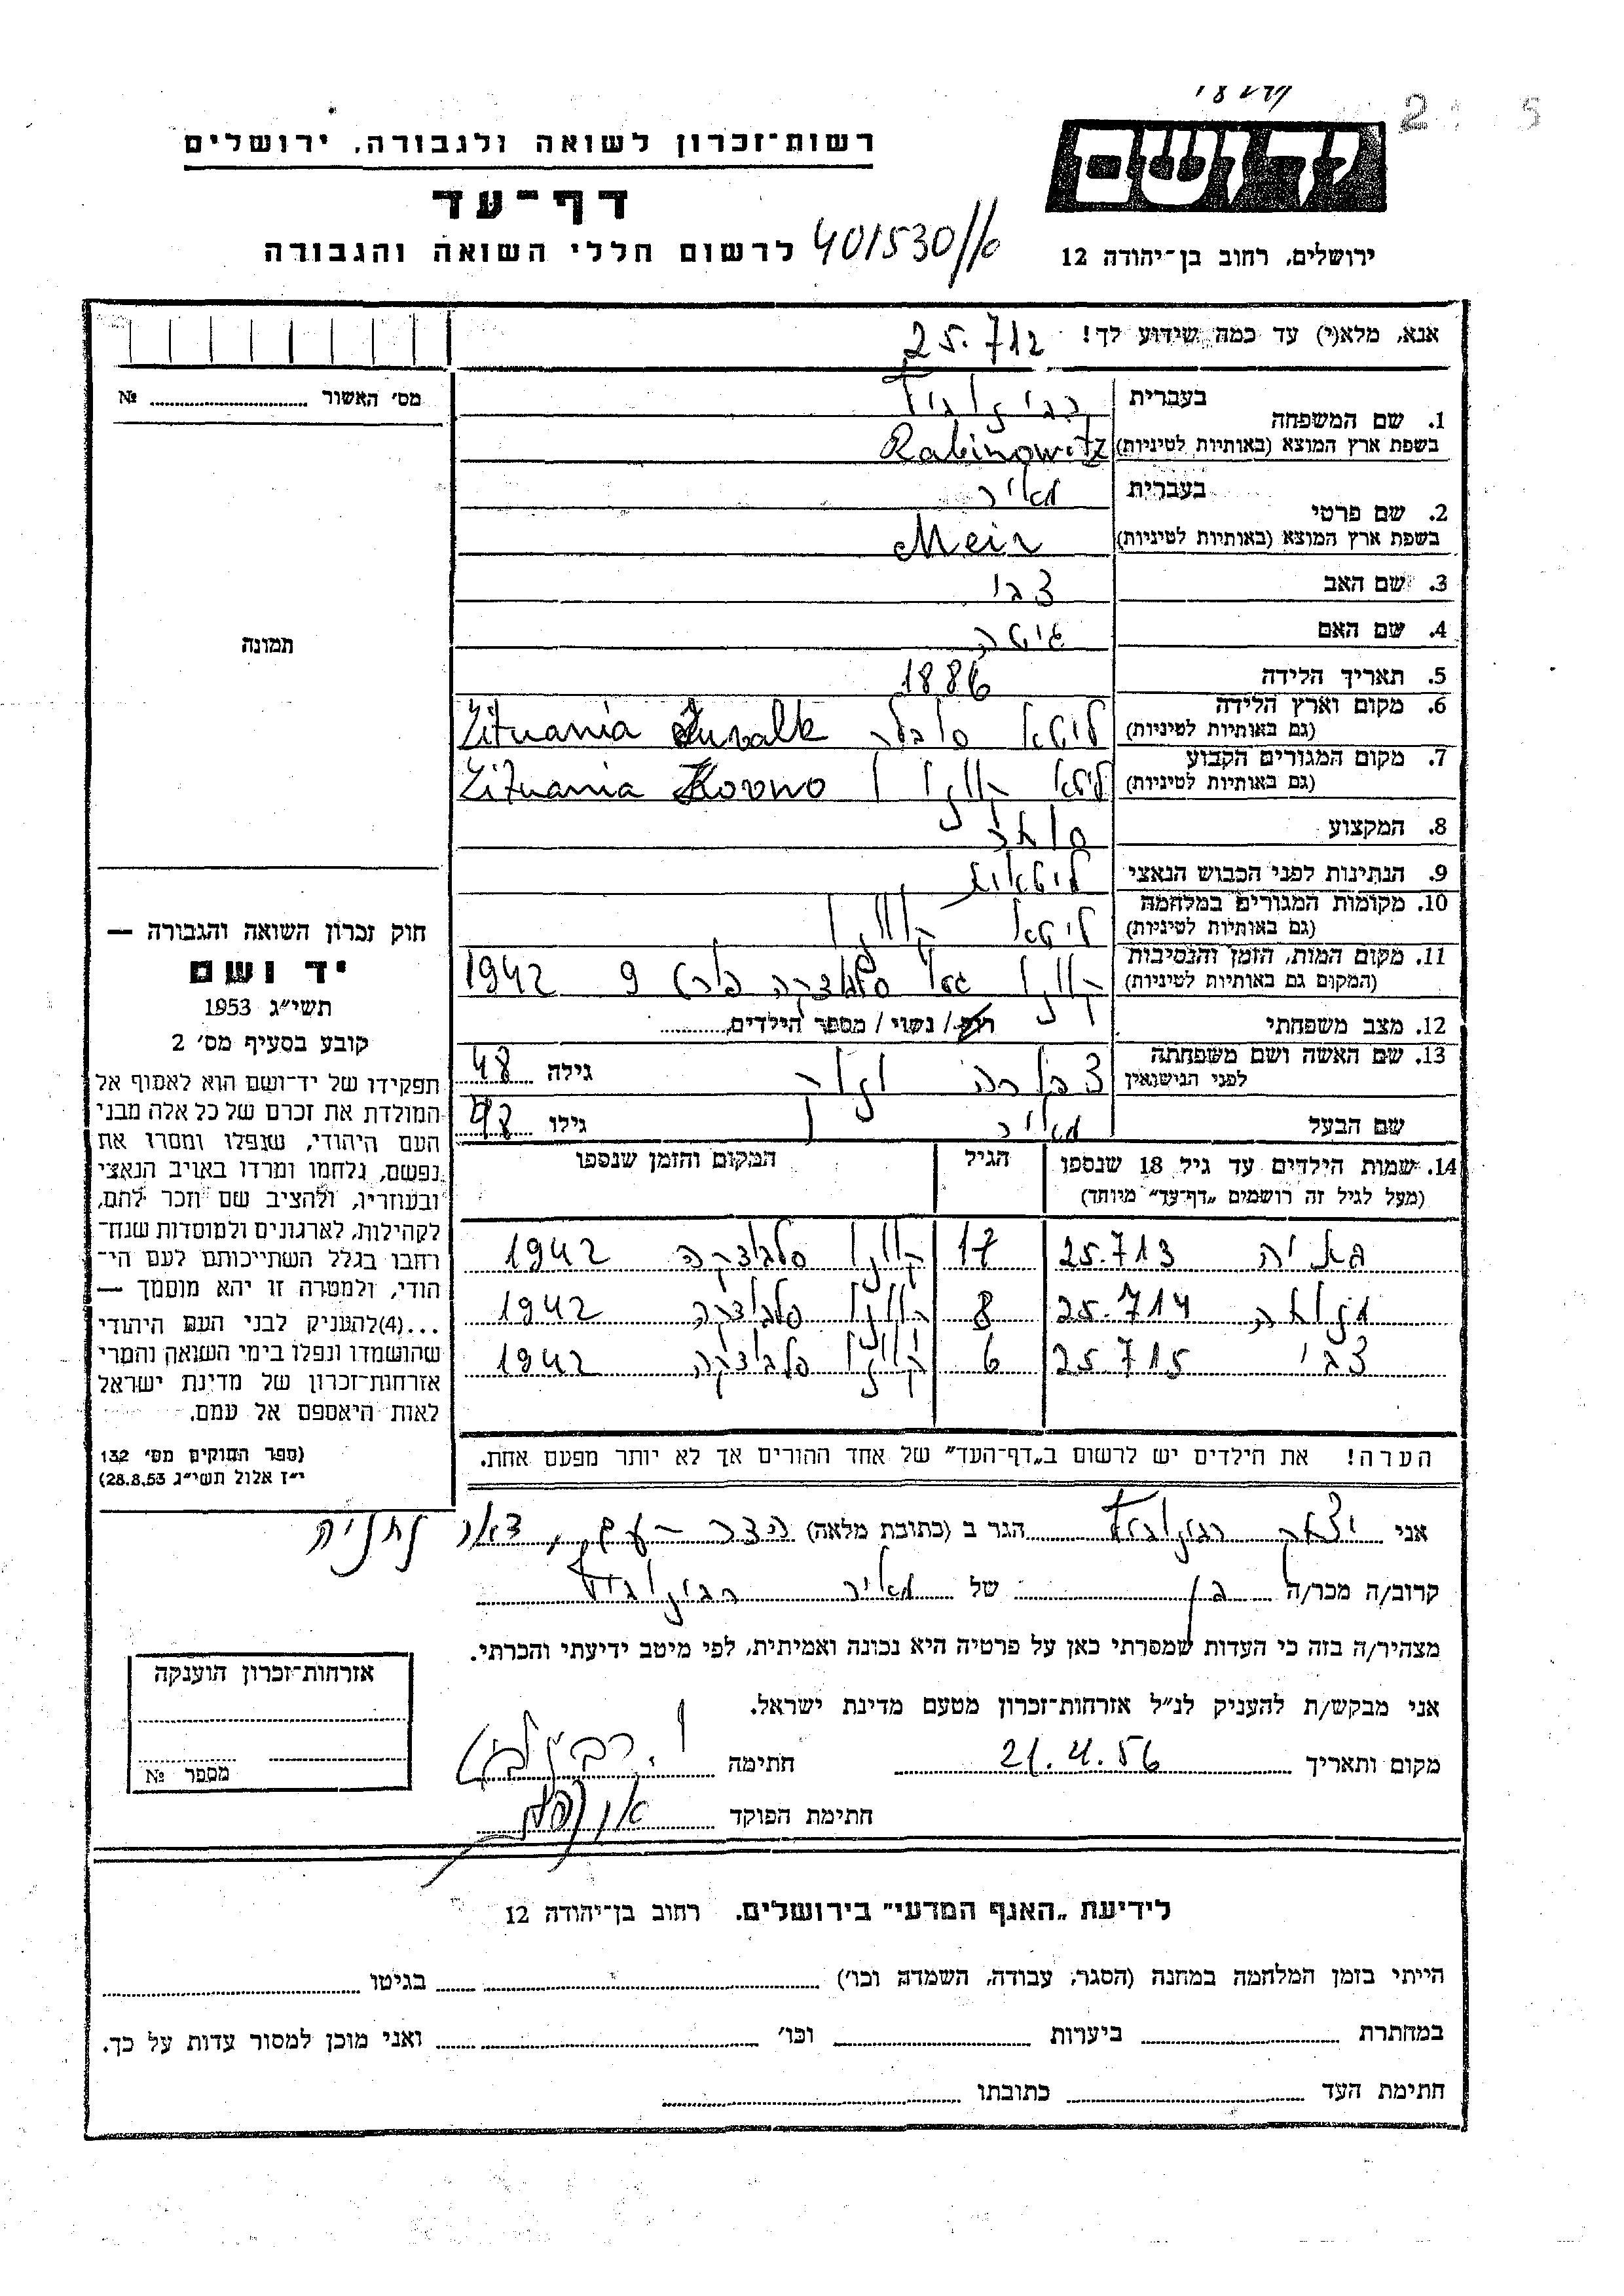 יד ושם
רשות־זכרון לשואה ולגבורה, ירושלים
דף־עד
לרשום חללי השואה והגבורה
401530/10
ירושלים, רחוב בן־יהודה 12
אנא, מלא(י) עד כמה שידוע לך!
25.712
מס' האשור № ............
תמונה
1. שם המשפחה
בעברית רבינוביץ
בשפת ארץ המוצא (באותיות לטיניות) Rabinowitz
2. שם פרטי
בעברית מאיר
בשפת ארץ המוצא (באותיות לטיניות) Meir
3. שם האב צבי
4. שם האם גיטה
5. תאריך הלידה 1886
6. מקום וארץ הלידה
(גם באותיות לטיניות) ליטא Suvalk Lituania
7. מקום המגורים הקבוע
(גם באותיות לטיניות) ליטא קובנו Kovno Lituania
8. המקצוע סוחר
9. הנתינות לפני הכבוש הנאצי ליטאית
10. מקומות המגורים במלחמה
(גם באותיות לטיניות) ליטא קובנו
11. מקום המות, הזמן והנסיבות
(המקום גם באותיות לטיניות) קובנו פורט 9 1942
12. מצב משפחתי רוק / נשוי / מספר הילדים............
13. שם האשה ושם משפחתה
לפני הנישואין גילה 48
שם הבעל מאיר גילו 48
14. שמות הילדים עד גיל 18 שנספו
(מעל לגיל זה רושמים „דף־עד" מיוחד)
הגיל
המקום והזמן שנספו
25.713 17 קובנו סלבודקה 1942
25.714 8 קובנו סלבודקה 1942
צבי 25.715 6 קובנו סלבודקה 1942
הערה! את הילדים יש לרשום ב„דף־העד" של אחד ההורים אך לא יותר מפעם אחת.
חוק זכרון השואה והגבורה —
יד ושם
תשי"ג 1953
קובע בסעיף מס' 2
תפקידו של יד־ושם הוא לאסוף אל
המולדת את זכרם של כל אלה מבני
העם היהודי, שנפלו ומסרו את
נפשם, נלחמו ומרדו באויב הנאצי
ובעוזריו, ולהציב שם וזכר להם,
לקהילות, לארגונים ולמוסדות שנח־
רחבו בגלל השתייכותם לעם הי־
הודי, ולמטרה זו יהא מוסמך —
...(4)להעניק לבני העם היהודי
שהושמדו ונפלו בימי השואה והמרי
אזרחות־זכרון של מדינת ישראל
לאות היאספם אל עמם.
(ספר החוקים מס' 132
י"ז אלול תשי"ג 28.8.53)
אני יצחק רבינוביץ הגר ב (כתובת מלאה) דאר נתניה
קרוב/ה מכר/ה בן של מאיר רבינוביץ
מצהיר/ה בזה כי העדות שמסרתי כאן על פרטיה היא נכונה ואמיתית, לפי מיטב ידיעתי והכרתי.
אני מבקש/ת להעניק לנ"ל אזרחות־זכרון מטעם מדינת ישראל.
מקום ותאריך 21.4.56 חתימה י. רבינוביץ
חתימת הפוקד
אזרחות־זכרון הוענקה
מספר №
לידיעת „האגף המדעי" בירושלים. רחוב בן־יהודה 12
הייתי בזמן המלחמה במחנה (הסגר, עבודה, השמדה וכו') ............ בגיטו ............
במחתרת ............ ביערות ............ וכו' ............ ואני מוכן למסור עדות על כך.
חתימת העד ............ כתובתו ............